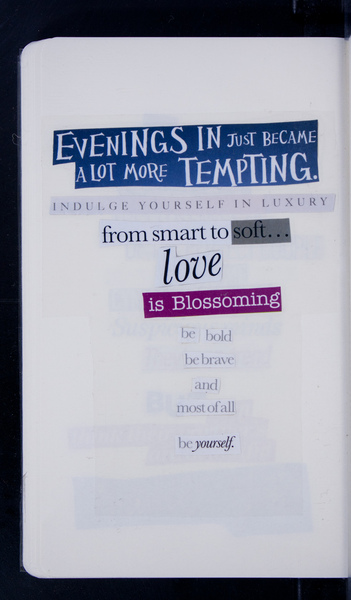 EVENINGS IN JUST BECAME
A LOT MORE TEMPTING.
INDULGE YOURSELF IN LUXURY
from smart to soft...
love
is Blossoming
be bold
be brave
and
most of all
be yourself.